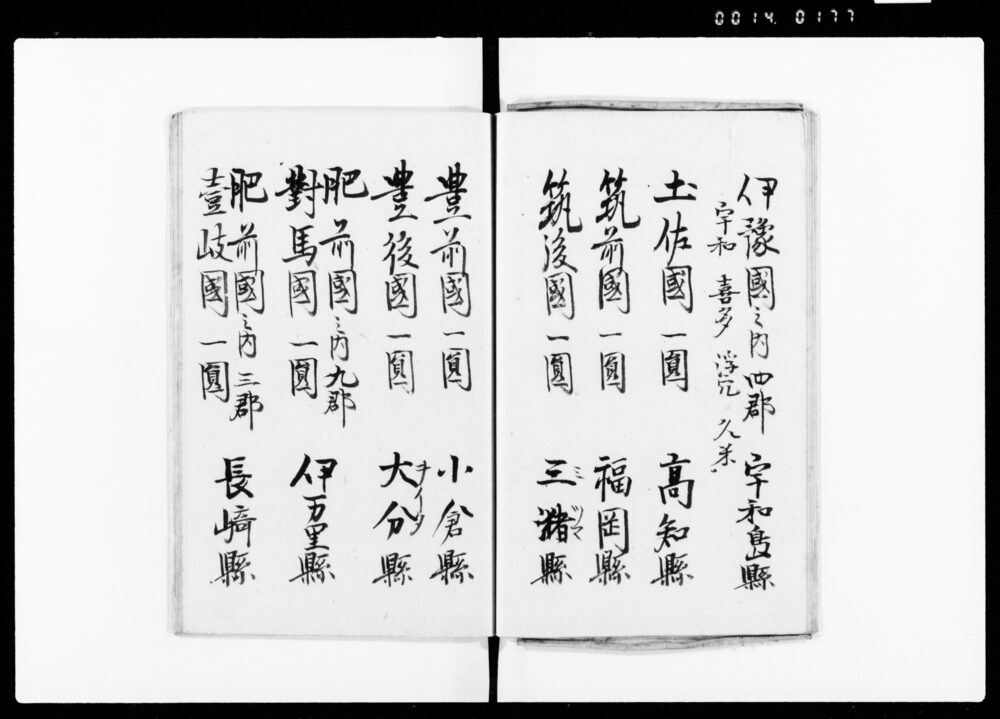 0014.0177
伊豫國之内四郡 宇和島縣
宇和 喜多 浮穴 久米
土佐國一圓 高知縣
筑前國一圓 福岡縣
筑後國一圓 三潴縣
ミ ツマ
豊前國一圓 小倉縣
豊後國一圓 大分縣
ヲイタ
肥前國之内九郡
對馬國一圓 伊万里縣
肥前國之内三郡
壹岐國一圓 長﨑縣